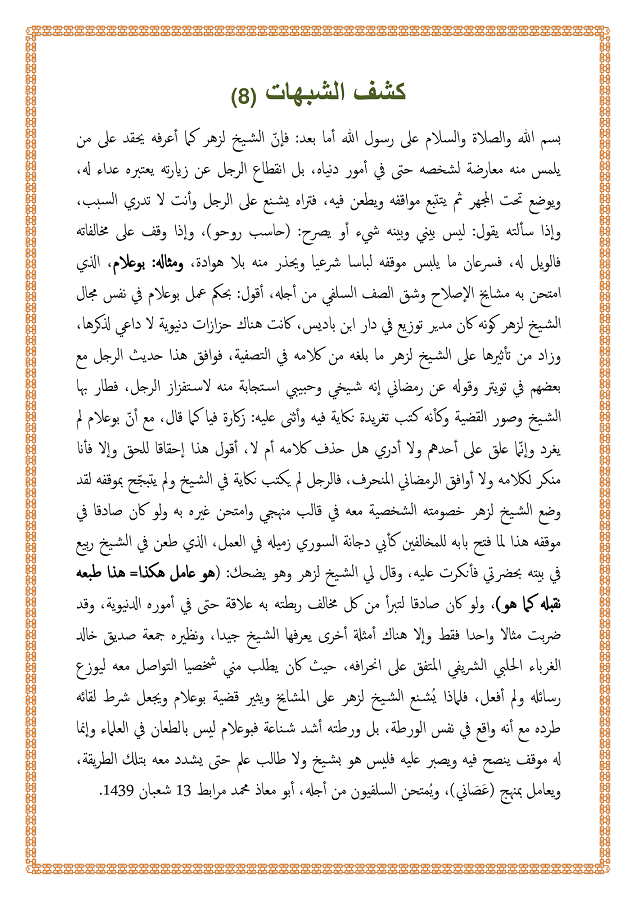 كشف الشبهات (8)
بسم الله والصلاة والسلام على رسول الله أما بعد: فإنّ الشيخ لزهر كما أعرفه يحقد على من
يلمس منه معارضة لشخصه حتى في أمور دنياه، بل انقطاع الرجل عن زيارته يعتبره عداء له،
ويوضع تحت المجهر ثم يتتبع مواقفه ويطعن فيه، فتراه يشنع على الرجل وأنت لا تدري السبب،
وإذا سألته يقول: ليس بيني وبينه شيء أو يصرح: (حاسب روحو)، وإذا وقف على مخالفاته
فالويل له، فسرعان ما يلبس موقفه لباسا شرعيا ويحذر منه بلا هوادة، ومثاله: بوعلام، الذي
امتحن به مشايخ الإصلاح وشق الصف السلفي من أجله، أقول: بحكم عمل بوعلام في نفس مجال
الشيخ لزهر كونه كان مدير توزيع في دار ابن باديس، كانت هناك حزازات دنيوية لا داعي لذكرها،
وزاد من تأثيرها على الشيخ لزهر ما بلغه من كلامه في التصفية، فوافق هذا حديث الرجل مع
بعضهم في تويتر وقوله عن رمضاني إنه شيخي وحبيبي استجابة منه لاستفزاز الرجل، فطار بها
الشيخ وصور القضية وكأنه كتب تغريدة نكاية فيه وأثنى عليه: زكارة فيا كما قال، مع أنّ بوعلام لم
يغرد وإنّما علق على أحدهم ولا أدري هل حذف كلامه أم لا، أقول هذا إحقاقا للحق وإلا فأنا
منكر لكلامه ولا أوافق الرمضاني المنحرف، فالرجل لم يكتب نكاية في الشيخ ولم يتبجّح بموقفه لقد
وضع الشيخ لزهر خصومته الشخصية معه في قالب منهجي وامتحن غيره به ولو كان صادقا في
موقفه هذا لما فتح بابه للمخالفين كأبي دجانة السوري زميله في العمل، الذي طعن في الشيخ ربيع
في بيته بحضرتي فأنكرت عليه، وقال لي الشيخ لزهر وهو يضحك: (هو عامل هكذا= هذا طبعه
نقبله كما هو)، ولو كان صادقا لتبرأ من كل مخالف ربطته به علاقة حتى في أموره الدنيوية، وقد
ضربت مثالا واحدا فقط وإلا هناك أمثلة أخرى يعرفها الشيخ جيدا، ونظيره جمعة صديق خالد
الغرباء الحلبي الشريفي المتفق على انحرافه، حيث كان يطلب مني شخصيا التواصل معه ليوزع
رسائله ولم أفعل، فلماذا يُشنع الشيخ لزهر على المشايخ ويثير قضية بوعلام ويجعل شرط لقائه
طرده مع أنه واقع في نفس الورطة، بل ورطته أشد شناعة فبوعلام ليس بالطعان في العلماء وإنما
له موقف ينصح فيه ويصبر عليه فليس هو بشيخ ولا طالب علم حتى يشدد معه بتلك الطريقة،
ويعامل بمنهج (عَصَاني)، ويُمتحن السلفيون من أجله، أبو معاذ محمد مرابط 13 شعبان 1439.